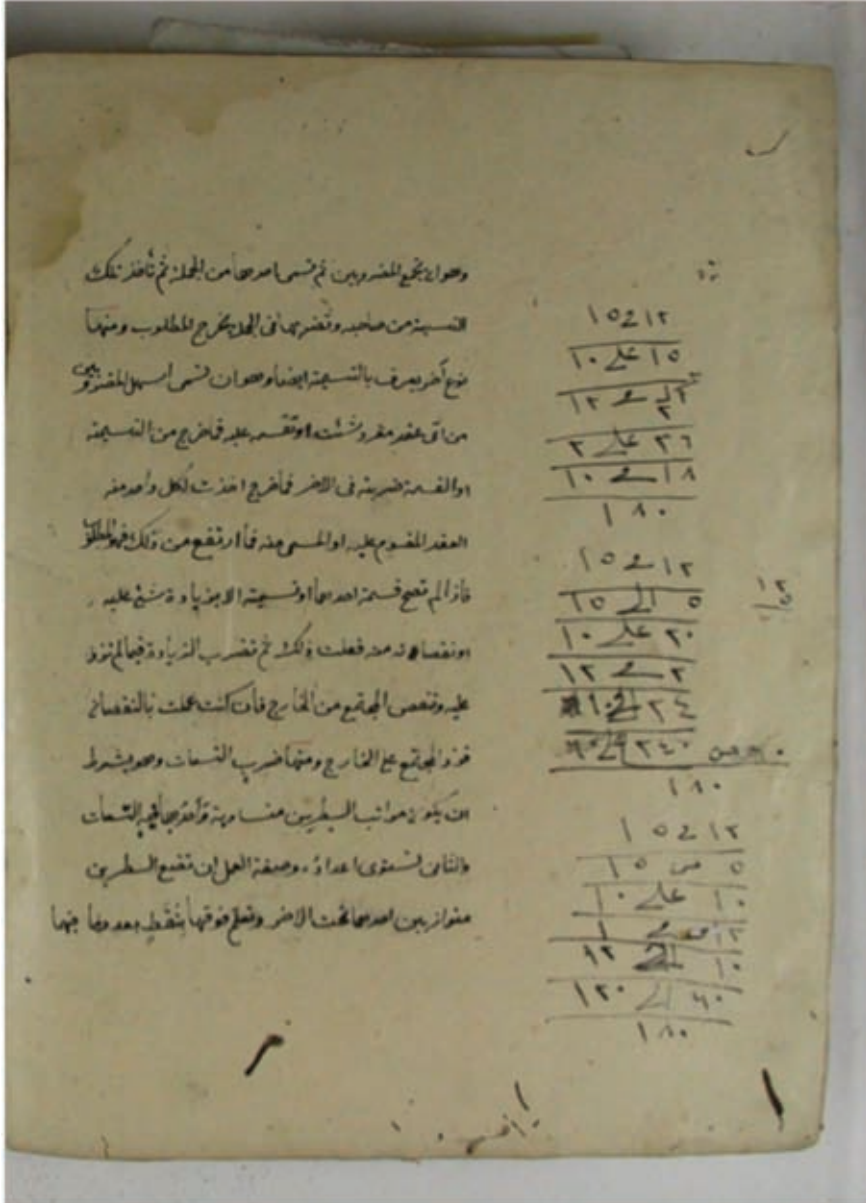 وهو ان تجمع المضروبين ثم تسمى احدهما من الجملة ثم تأخذ تلك
النسبة من صاحبه وتضربها فى الجملة يخرج المطلوب ومنها
نوع آخر يعرف بالتسمية ايضا وهو ان تسمى اسهل المضروبين
من اى عقد مفرد شئت او تقسمه عليه فما خرج من التسمية
او القسمة ضربته فى الاخر فما خرج اخذت لكل واحد منه
العقد المقسوم عليه او المسمى منه فما ارتفع من ذلك فهو المطلوب
فاذا لم تصح قسمة احدهما او تسميته الا بزيادة شئ عليه
او نقصانه منه فعلت ذلك ثم تضرب الزيادة فيما لم تزد
عليه وتنقص المجتمع من الخارج فأن كنت عملت بالنقصان
فزد المجتمع على الخارج ومنها ضرب التسعات وهو بشرط
ان يكون مراتب السطرين متساوية واحدهما فيه التسعات
والثانى تستوى اعداده وصفة العمل ان تضع السطرين
متوازيين احدهما تحت الاخر وتعلم فوقها بنقط بعدد ما فيها
١٢ فے ١٥
١٥ على ١٠
فے ١٢
٣٦ على ٢
١٨ فے ١٠
١٨٠
١٢ فے ١٥
٥ الى ١٥
٢٠ على ١٠
٢ فے ١٢
٢٤ فے ١٠
٢٤٠
١٨٠
١٢ فے ١٥
٥ من ١٥
١٠ على ١٠
١٠
٦٠ الى ١٢٠
١٨٠